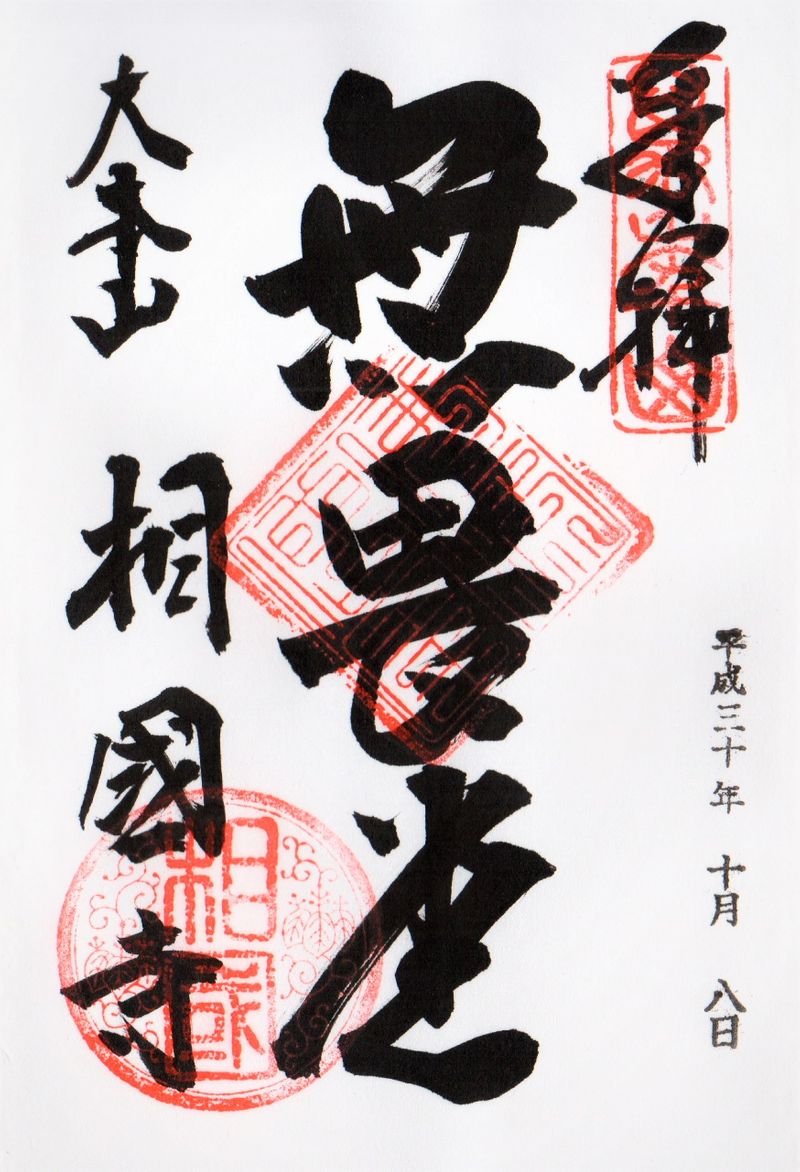 奉拝
平成三十年 十月 八日
無畏堂
大本山 相國寺
相國